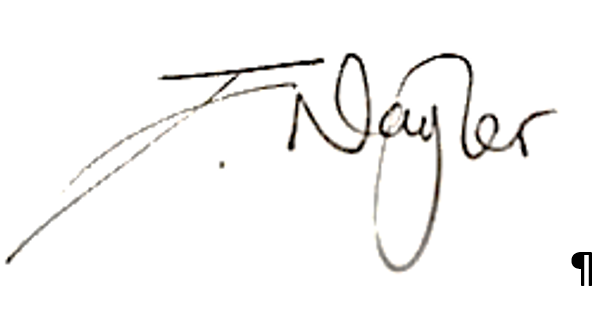 J. Nayler ¶